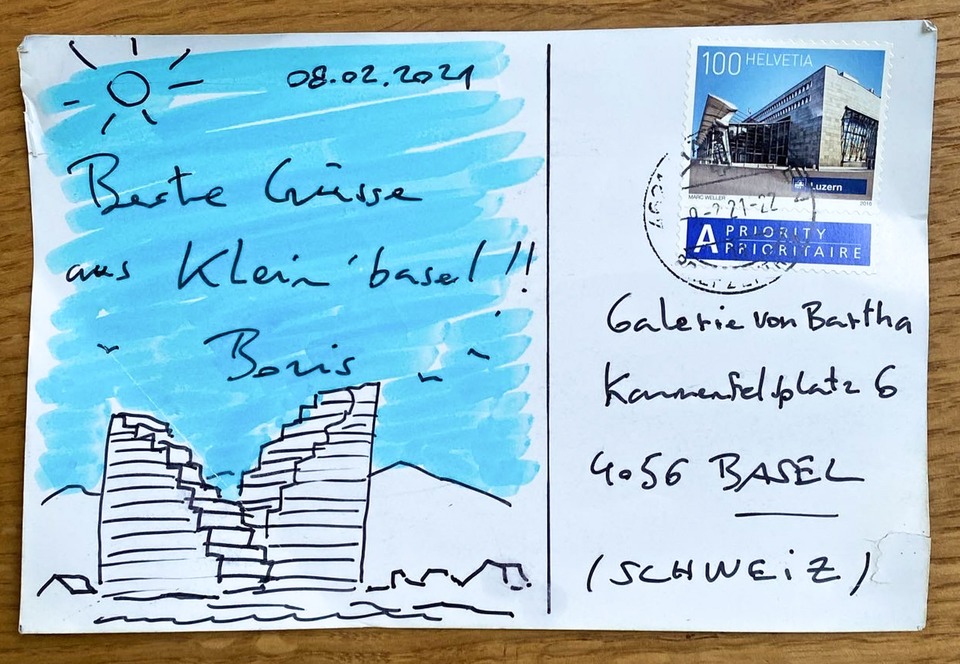 08.02.2021
Beste Grüsse
aus Klein'basel!!
Boris
100 HELVETIA
Luzern
MARC WELLER
2015
A PRIORITY
PRIORITAIRE
21-22
Galerie von Bartha
Kannenfeldplatz 6
4056 BASEL
(SCHWEiZ)